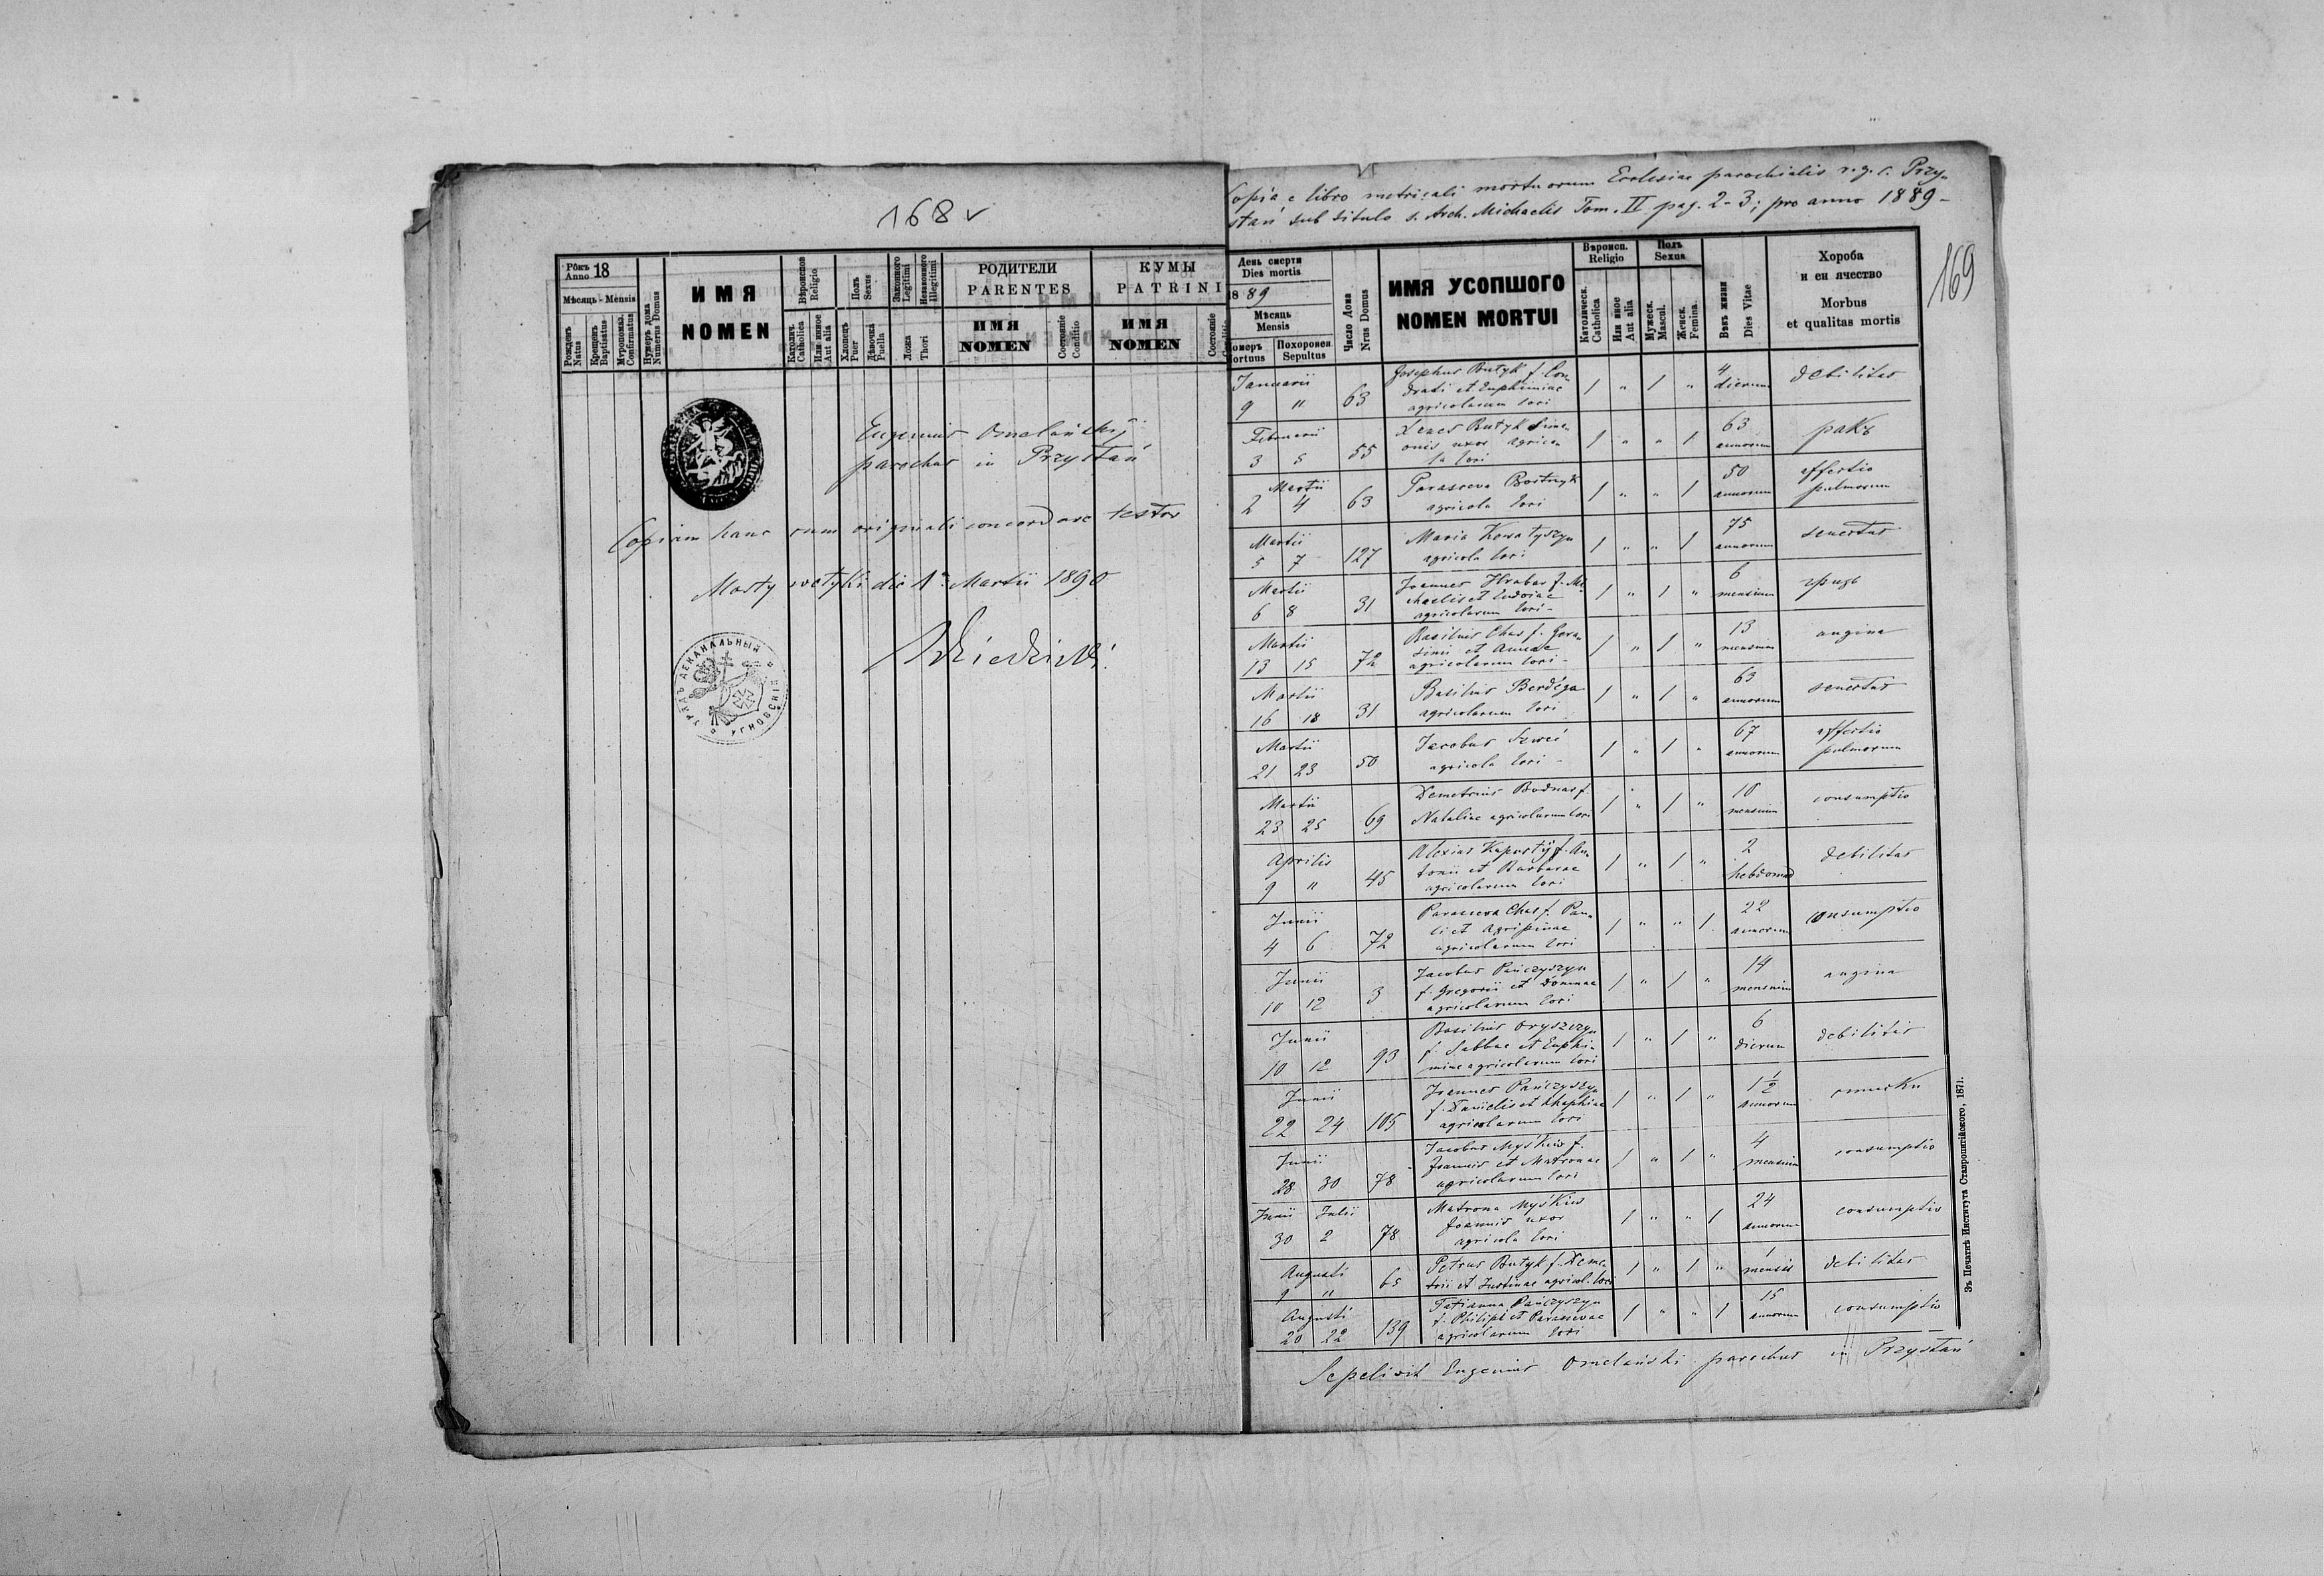 168 v
Рôкъ Anno 18
Мѣсяць - Mensis
Рожденъ Natus
Крещенъ Baptisatus
Мѵропомаз. Confirmatus
Нумеръ дома Numerus Domus
ИМЯ
NOMEN
Вѣроиспов Religio
Католич. Catholica
Или инное Aut alia
Полъ Sexus
Хлопець Puer
Дѣвочка Puella
Законного Legitimi
Незаконного Illegitimi
Ложа
Thori
РОДИТЕЛИ
PARENTES
ИМЯ
NOMEN
Состояніе Conditio
КУМЫ
PATRINI
ИМЯ
NOMEN
Состояніе
Eugenius Omelański
parochus in Przystań
Copiam hanc cum originali concordare testor
Mosty wetyki die 1a Martii 1890
УРЯДЪ ДЕКАНАЛЬНЫЙ УГНОВСКІЙ
Copia e libro metricali mortuorum Ecclesiae parochialis r. g. c. Przy-
stań sub titulo s. Arch. Michaelis Tom. II pag. 2-3; pro anno 1889-
169
День смерти Dies mortis
1889
Мѣсяць Mensis
Похоронен Sepultus
Число Дома Nrus Domus
ИМЯ УСОПШОГО
NOMEN MORTUI
Вѣроисп. Religio
Католическ. Catholica
Или иное Aut alia
Полъ Sexus
Мужеск. Mascul.
Женск. Femina.
Вѣкъ жизни Dies Vitae
Хороба
и еи ячество
Morbus
et qualitas mortis
Januarii Josephus Butyk f. Con- 4
9 " 63 drati et Euphimiae 1 " 1 " dierum debilitas
agricolarum lori
Februarii Xenes Butyk Sime- 63
3 5 55 onis uxor agrico- 1 " " 1 annorum ракъ
la lori
Martii Parasceva Bortnyk 50 affectio
2 4 63 agricola lori 1 " " 1 annorum pulmorum
Martii Maria Kowatyszyn 75
5 7 127 agricola lori 1 " " 1 annorum senectus
Martii Joannes Hrabar f. Mi- 6
6 8 31 chaelis et Eudoxiae 1 " 1 " mensium
agricolarum lori-
Martii Basilius Chas f. Gera- 13
13 15 72 simi et Annae 1 " 1 " mensium angina
agricolarum lori-
Martii Basilius Berdéga 63
16 18 31 agricolarum lori 1 " 1 " annorum senectus
Martii Jacobus Szweć 67 affectio
21 23 50 agricola lori - 1 " 1 " annorum pulmorum
Martii Demetrius Bodnar f. 10
23 25 69 Nataliae agricolarum lori 1 " 1 " mensium consumptio
Aprilis Alexius Kapustij f. An- 2
9 " 45 tonii et Barbarae 1 " 1 " hebdomad debilitas
agricolarum lori
Junii Parasceva Chas f. Pau- 22
4 6 72 li et Agripinae 1 " " 1 annorum consumptio
agricolarum lori
Junii Jacobus Pańczyszyn 14
10 12 3 f. Gregorii et Domnae 1 " 1 " mensium angina
agricolarum lori
Junii Basilius Oryszczyn 6
10 12 93 f. Sabbae et Euphi- 1 " 1 " dierum debilitas
miae agricolarum lori
Junii Joannes Pańczyszyn 1 1/2
22 24 105 f. Danielis et 1 " 1 " annorum
agricolarum lori
Junii Jacobus Myśkiw f. 4
28 30 78 Joannis et Matronae 1 " 1 " mensium consumptio
agricolarum lori
Junii Julii Matrona Myśkiw 24
30 2 78 Joannis uxor 1 " " 1 annorum consumptio
agricola lori
Augusti Petrus Butyk f. Deme- 1
9 " 65 trii et Justinae agricol. lori 1 " 1 " mensis debilitas
Augusti Tatianna Pańczyszyn 15
20 22 139 f. Philipi et Parascevae 1 " " 1 annorum consumptio
agricolarum lori
Sepelivit Eugenius Omelański parochus in Przystań
Зъ Печатнѣ Института Ставропигійского, 1871.